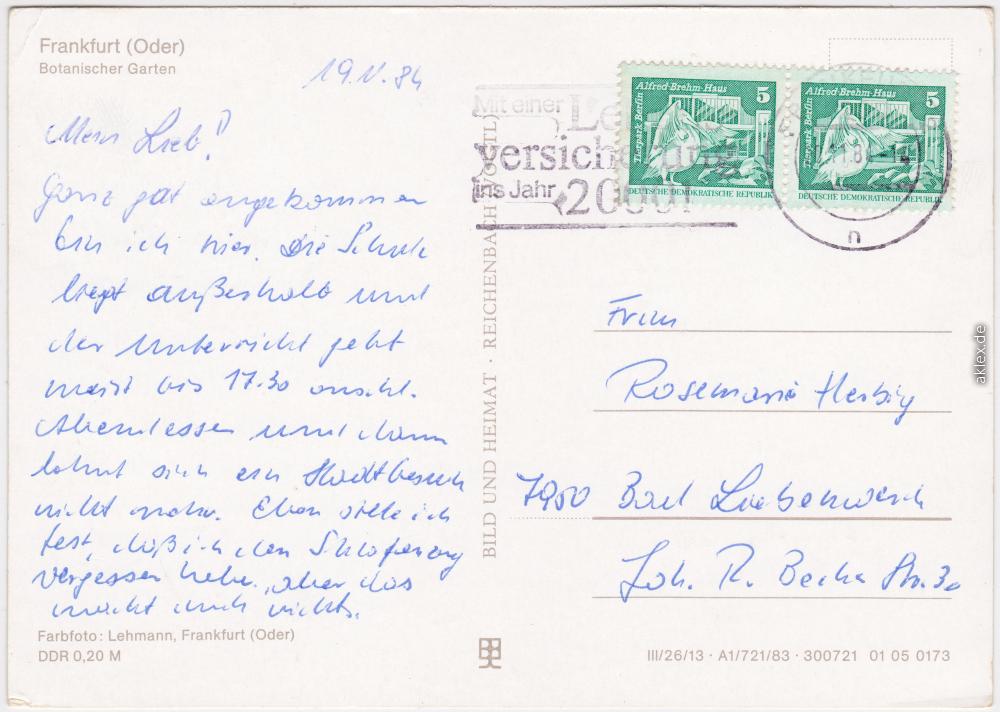 Frankfurt (Oder)
Botanischer Garten
19.V.84
Mein Lieb!
Ganz gut angekommen
bin ich hier. Die Schule
liegt außerhalb und
der Unterricht geht
meist bis 17.30 anschl.
Abendessen und dann
lohnt sich ein Stadtbesuch
nicht mehr. Eben stelle ich
fest, daß ich den Schlafanzug
vergessen habe, aber das
macht auch nichts.
Farbfoto: Lehmann, Frankfurt (Oder)
DDR 0,20 M
BILD UND HEIMAT · REICHENBACH (VOGTL)
Mit einer
ins Jahr
Alfred-Brehm-Haus
5
Tierpark Berlin
DEUTSCHE DEMOKRATISCHE REPUBLIK
Alfred-Brehm-Haus
5
Tierpark Berlin
DEUTSCHE DEMOKRATISCHE REPUBLIK
n
Frau
Rosemarie Herbig
7950 Bad Liebenwerda
Joh. R. Becher Str. 30
III/26/13 · A1/721/83 · 300721 01 05 0173
aklex.de